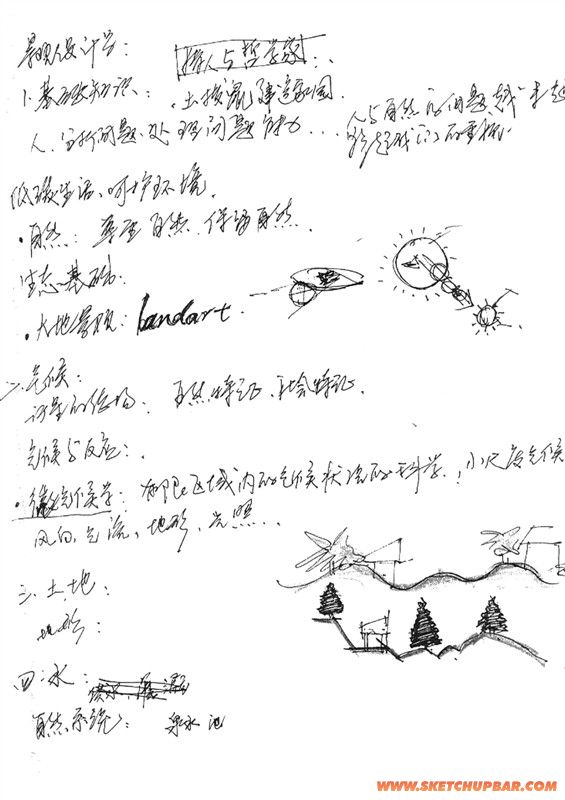 景观设计学： 猎人与哲学家
1.基础知识： 土拨鼠建造家园
人、分析问题、处理问题能力... 人与自然的问题越来越
低碳生活、呵护环境.
·自然： 尊重自然、保护自然.
生态基础.
·大地景观：Landart.
二、气候：
自然特征、社会特征.
气候与反应：.
·微气候学：有限区域内的气候状况的科学，小尺度气候
风向、气流、地形、光照...
三、土地：
地形：
四：水：
自然系统： 泉水 池
WWW.SKETCHUPBAR.COM